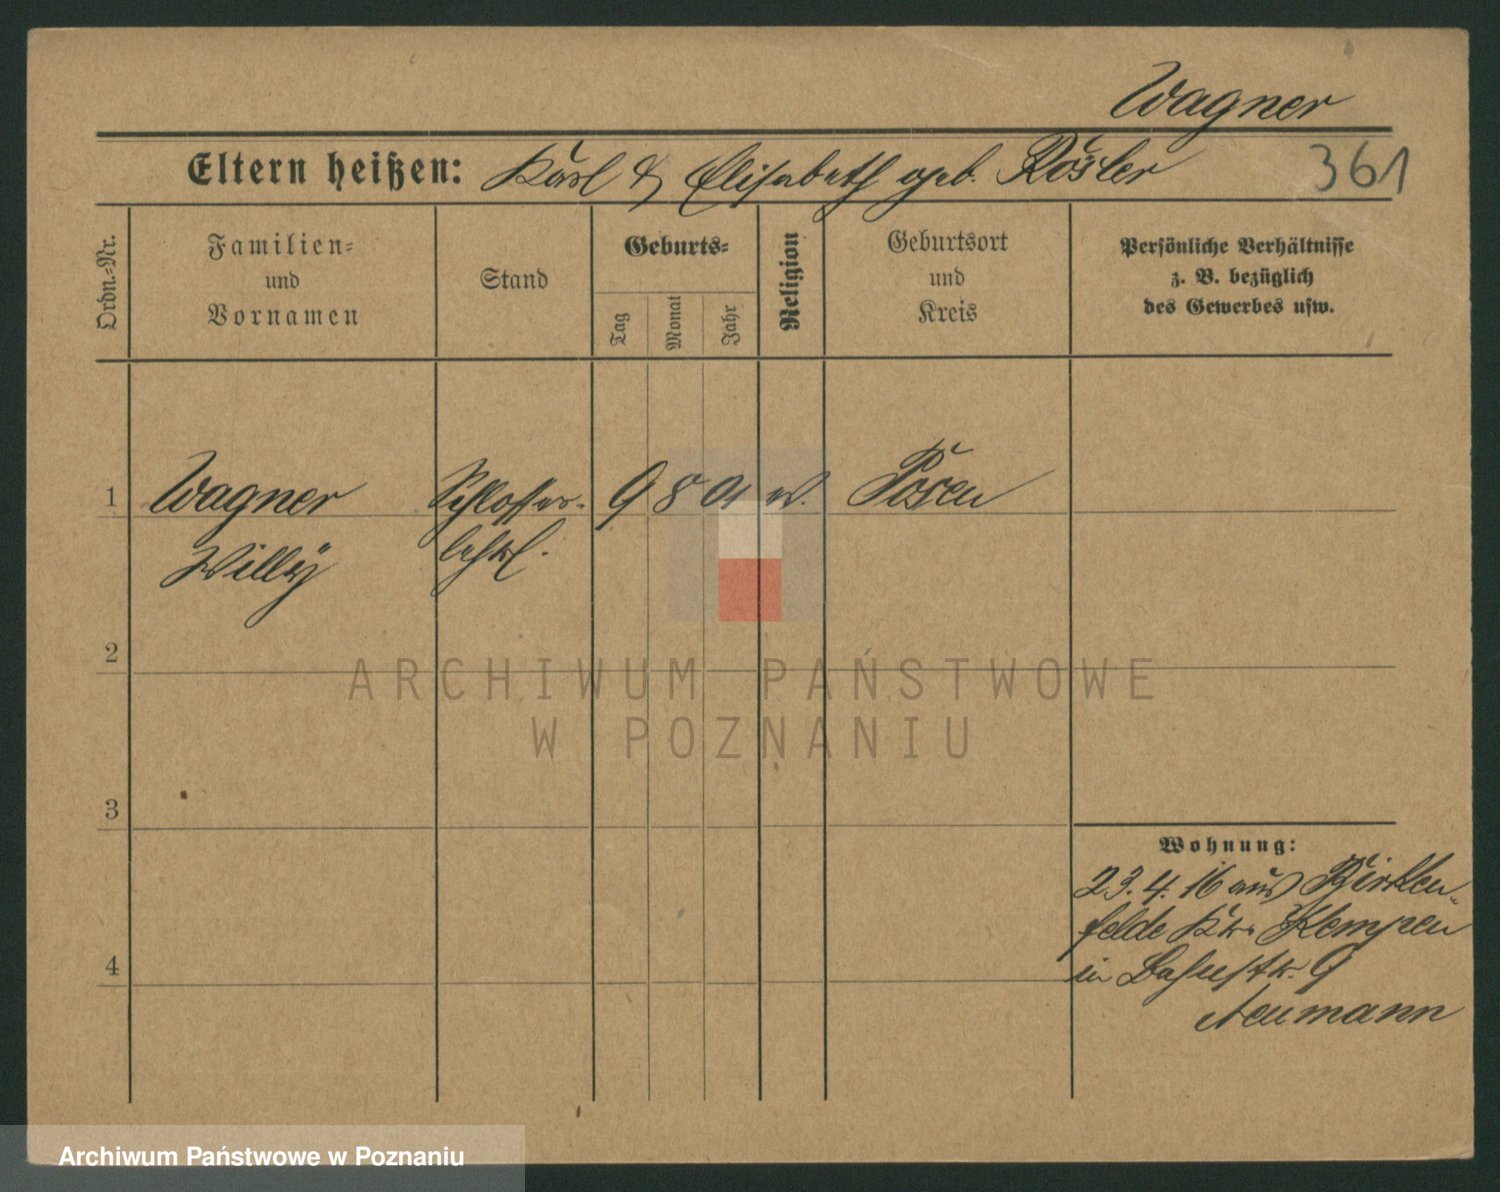 Wagner
Eltern heißen: Karl & Elisabeth geb. Rösler
361
Ordn.=Nr.
Familien=
und
Vornamen
Stand
Geburts=
Tag
Monat
Jahr
Religion
Geburtsort
und
Kreis
Persönliche Verhältnisse
z. B. bezüglich
des Gewerbes usw.
1
Wagner
Willÿ
Schlosser-
lehrl.
9 8 01
Posen
2
ARCHIWUM PAŃSTWOWE
W POZNANIU
3
Wohnung:
23.4.16 aus Birken-
felde Kr. Kempen
in 9
Neumann
4
Archiwum Państwowe w Poznaniu